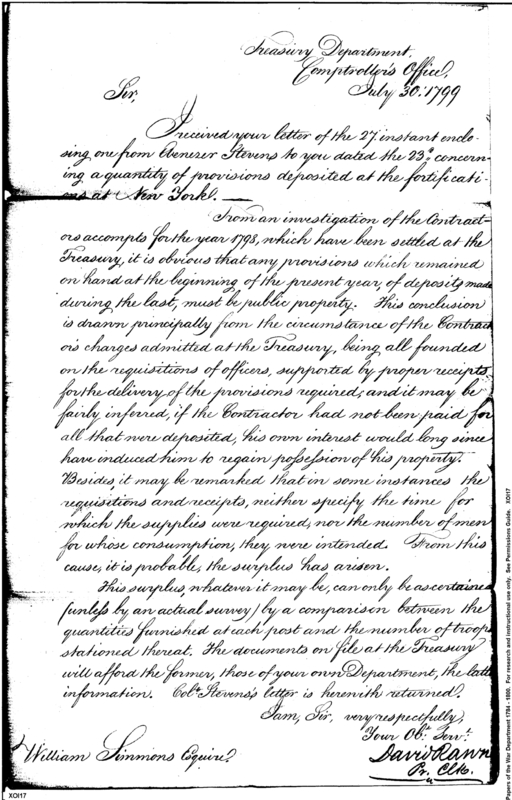 Treasury Department,
Comptroller's Office,
July 30. 1799
Sir,
I received your letter of the 27. instant enclo-
sing one from Ebenezer Stevens to you dated the 23d. concern-
ing a quantity of provisions deposited at the fortificati-
ons at New York.—
From an investigation of the Contract-
ors accompts for the year 1798, which have been settled at the
Treasury, it is obvious that any provisions which remained
on hand at the beginning of the present year, of deposits made
during the last, must be public property. This conclusion
is drawn principally from the circumstance of the Contract
or's charges admitted at the Treasury, being all founded
on the requisitions of officers, supported by proper receipts
for the delivery of the provisions required; and it may be
fairly inferred, if the Contractor had not been paid for
all that were deposited, his own interest would long since
have induced him to regain possession of his property.
Besides, it may be remarked that in some instances the
requisitions and receipts, neither specify the time for
which the supplies were required, nor the number of men
for whose consumption, they were intended. From this
cause, it is probable, the surplus has arisen.
This surplus, whatever it may be, can only be ascertained
(unless by an actual survey) by a comparison between the
quantities furnished at each post and the number of troops
stationed thereat. The documents on file at the Treasury
will afford the former, those of your own Department, the latter
information. Colo. Stevens's letter is herewith returned.
I am, Sir, very respectfully,
Your Obt. Servt.
David Rawn
Pr. Clk.
William Simmons Esquire.
XOI17
Papers of the War Department 1784 - 1800. For research and instructional use only. See Permissions Guide. XOI17